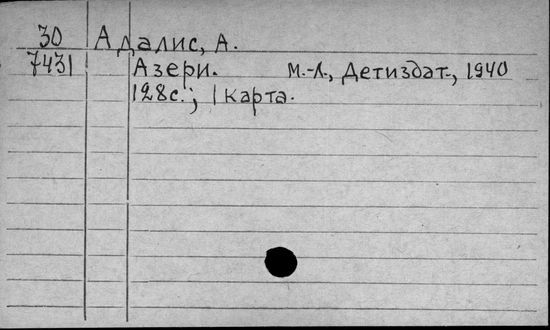 30 Адалис, А.
7431 Азери. М.-Л., Детиздат, 1940
128с.; 1 карта.